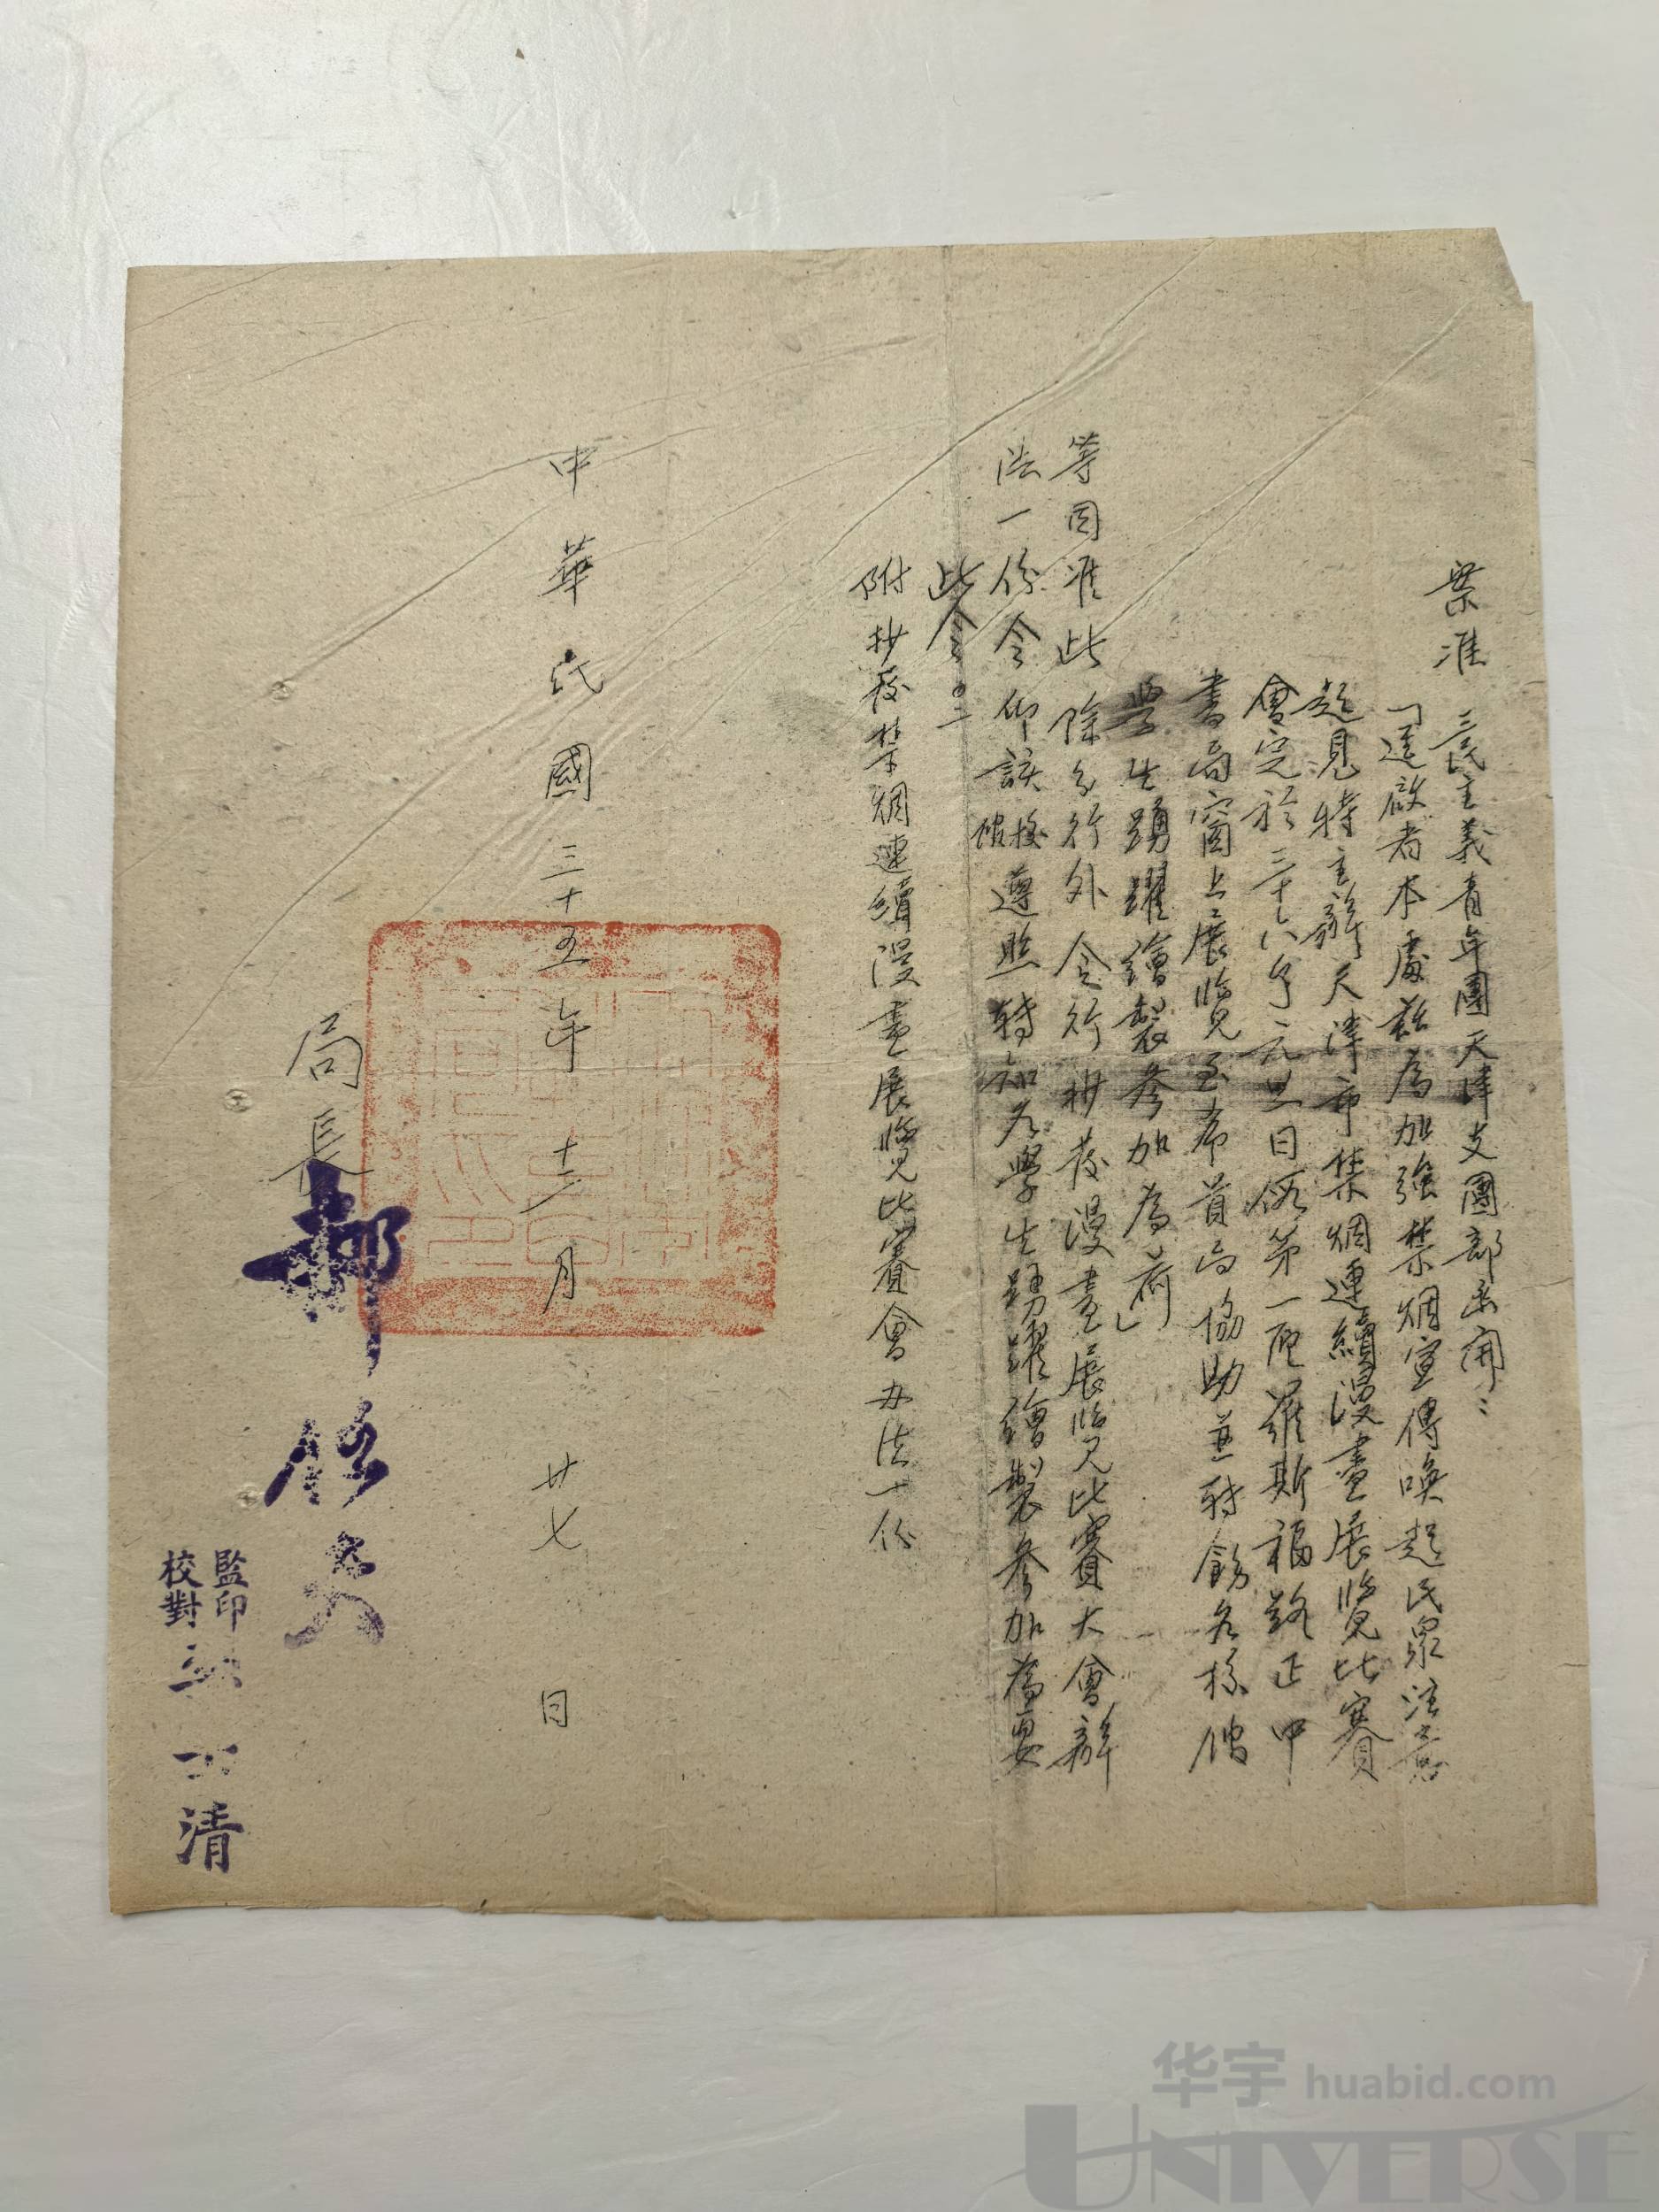 案准
三民主義青年團天津支團部函開：
「逕啟者本處茲為加強禁烟宣傳喚起民衆注意
起見特主辦天津市禁烟連續漫畫展覽比賽
會定於三十六年元旦日假第一區羅斯福路正中
書局窗上展覽至希貴局協助並轉飭各校俾
學生踴躍繪製參加為荷」
等因准此除分行外合行抄發漫畫展覽比賽大會辦
法一份令仰該校館遵照轉知各學生踴躍繪製參加為要
此令
附抄發禁烟連續漫畫展覽比賽會办法一份
中華民國三十五年十二月廿七日
局長郝任夫
監印
校對
清
华宇 huabid.com
UNIVERSE